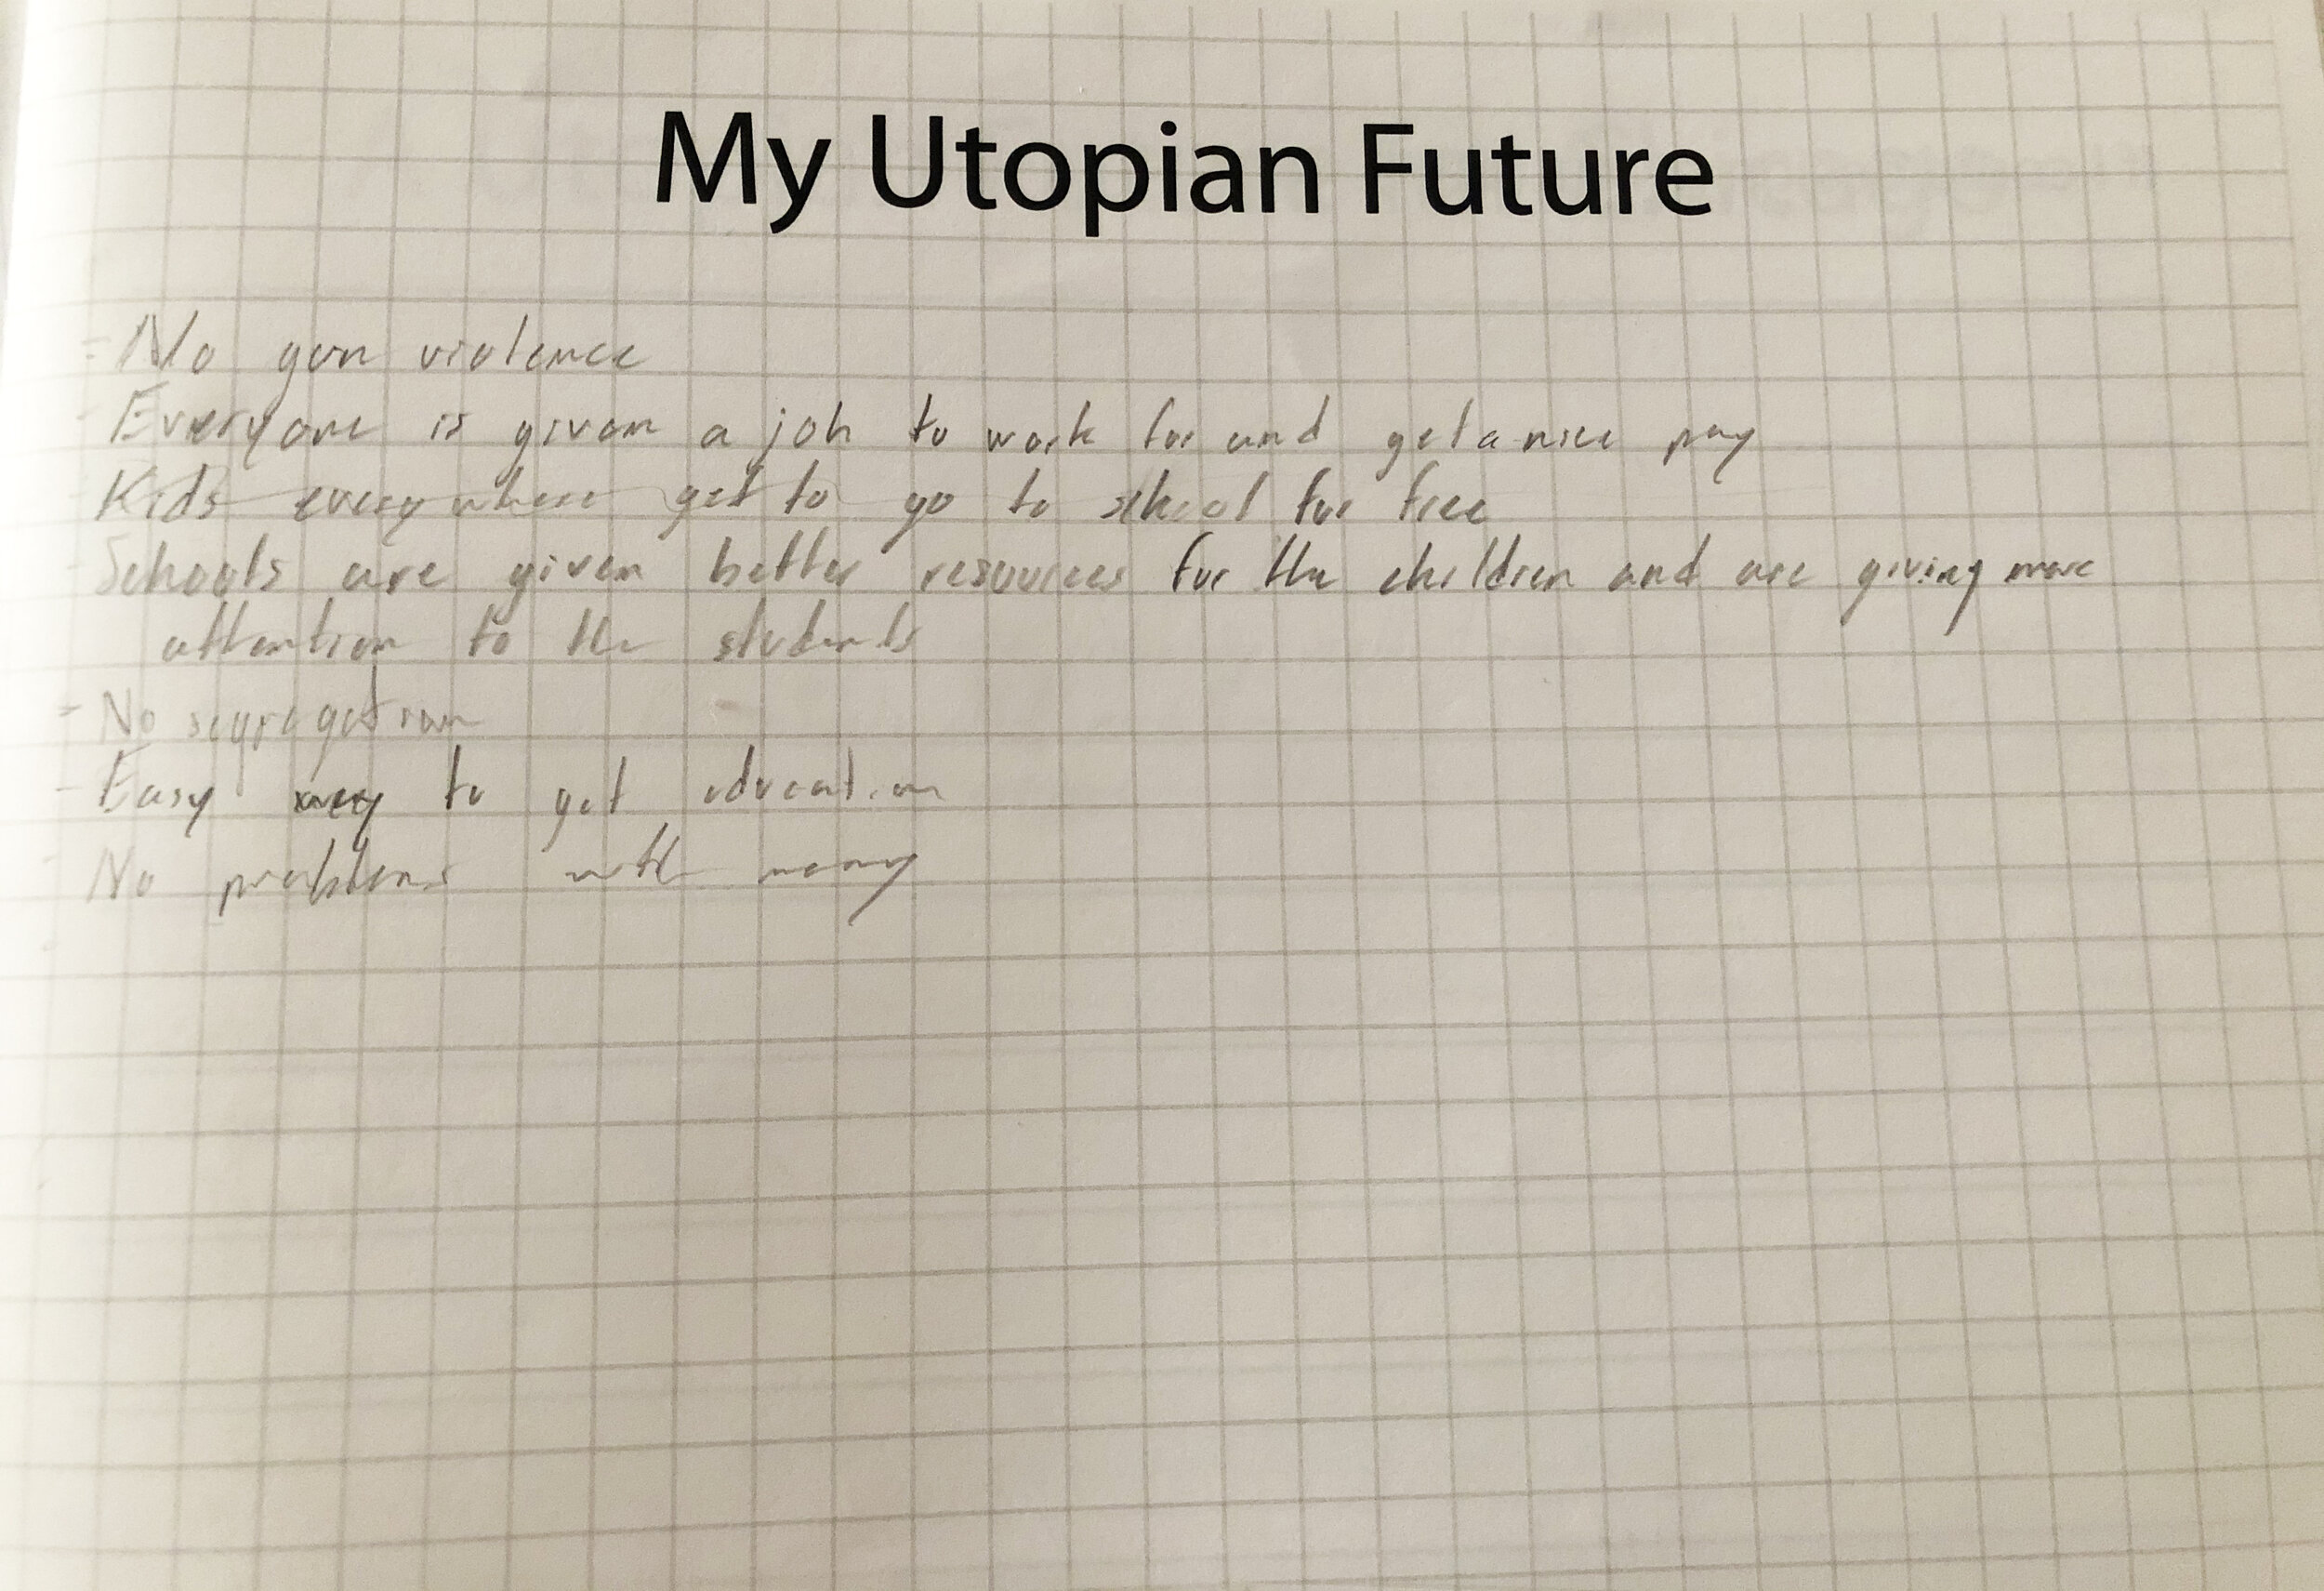 My Utopian Future
- No gun violence
- Everyone is given a job to work for and get a nice pay
- Kids everywhere get to go to school for free
- Schools are given better resources for the children and are giving more
attention to the students
- No segregation
- Easy way to get education
- No problems with money